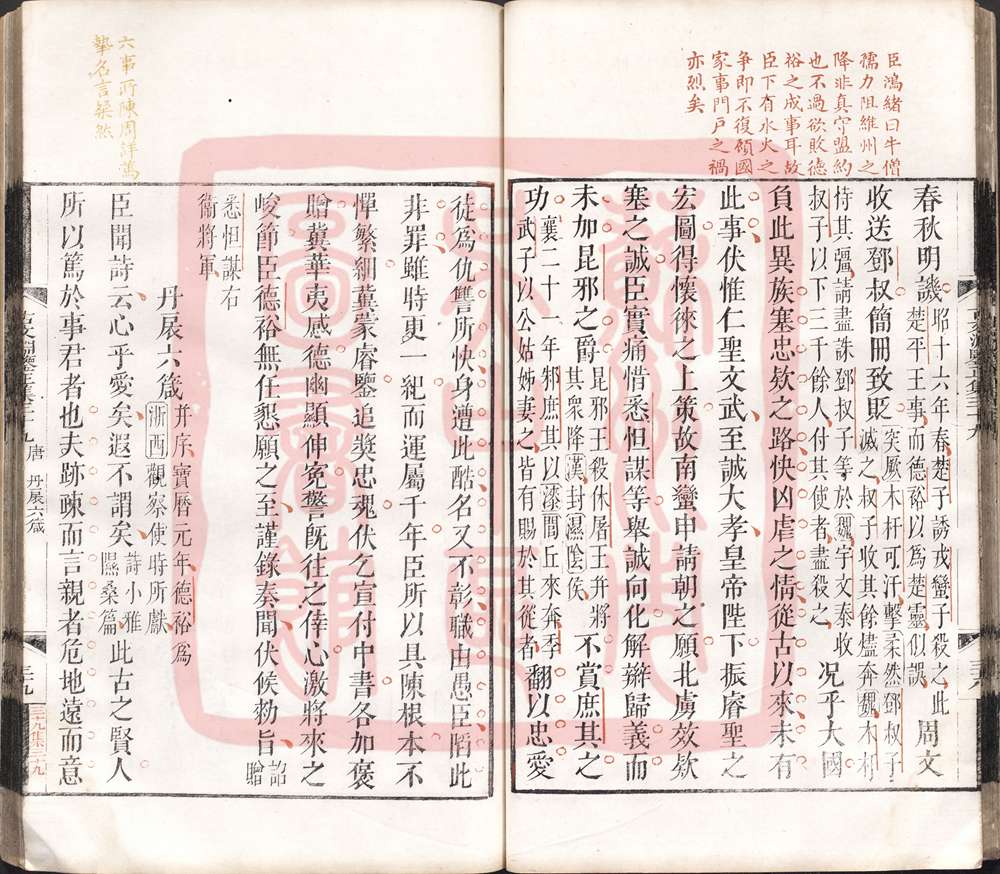 臣鴻緒曰牛僧
孺力阻維州之
降非真守盟約
也不過欲敗德
裕之成事耳故
臣下有水火之
争即不復顧國
家事門戶之禍
亦烈矣
春秋明譏昭十六年春楚子誘戎蠻子殺之此楚平王事而德裕以為楚靈似誤周文
收送鄧叔簡冊致貶突厥木杆可汗擊柔然鄧叔子滅之叔子收其餘燼奔魏木杆
恃其彊請盡誅鄧叔子等於魏宇文泰收叔子以下三千餘人付其使者盡殺之況乎大國
負此異族塞忠欵之路快凶虐之情從古以來未有
此事伏惟仁聖文武至誠大孝皇帝陛下振睿聖之
宏圖得懷徠之上策故南蠻申請朝之願北虜效欵
塞之誠臣實痛惜悉怛謀等舉誠向化解辮歸義而
未加昆邪之爵昆邪王役休屠王并將其衆降漢封濕陰侯不賞庶其之
功襄二十一年邾庶其以漆閭丘來奔季武子以公姑姊妻之皆有賜於其從者翻以忠愛
徒為仇讐所快身遭此酷名又不彰職由愚臣陷此
非罪雖時更一紀而運屬千年臣所以具陳根本不
憚繁細冀蒙睿鑒追奬忠魂伏乞宣付中書各加褒
贈冀華夷感德幽顯伸寃警既往之倖心激將來之
峻節臣德裕無任懇願之至謹錄奏聞伏候勑旨詔贈
悉怛謀右衞將軍
六事所陳周詳篤
摯名言粲然
丹扆六箴并序寶曆元年德裕為浙西觀察使時所獻
臣聞詩云心乎愛矣遐不謂矣詩小雅隰桑篇此古之賢人
所以篤於事君者也夫跡疎而言親者危地遠而意
唐
丹扆六箴
三十九